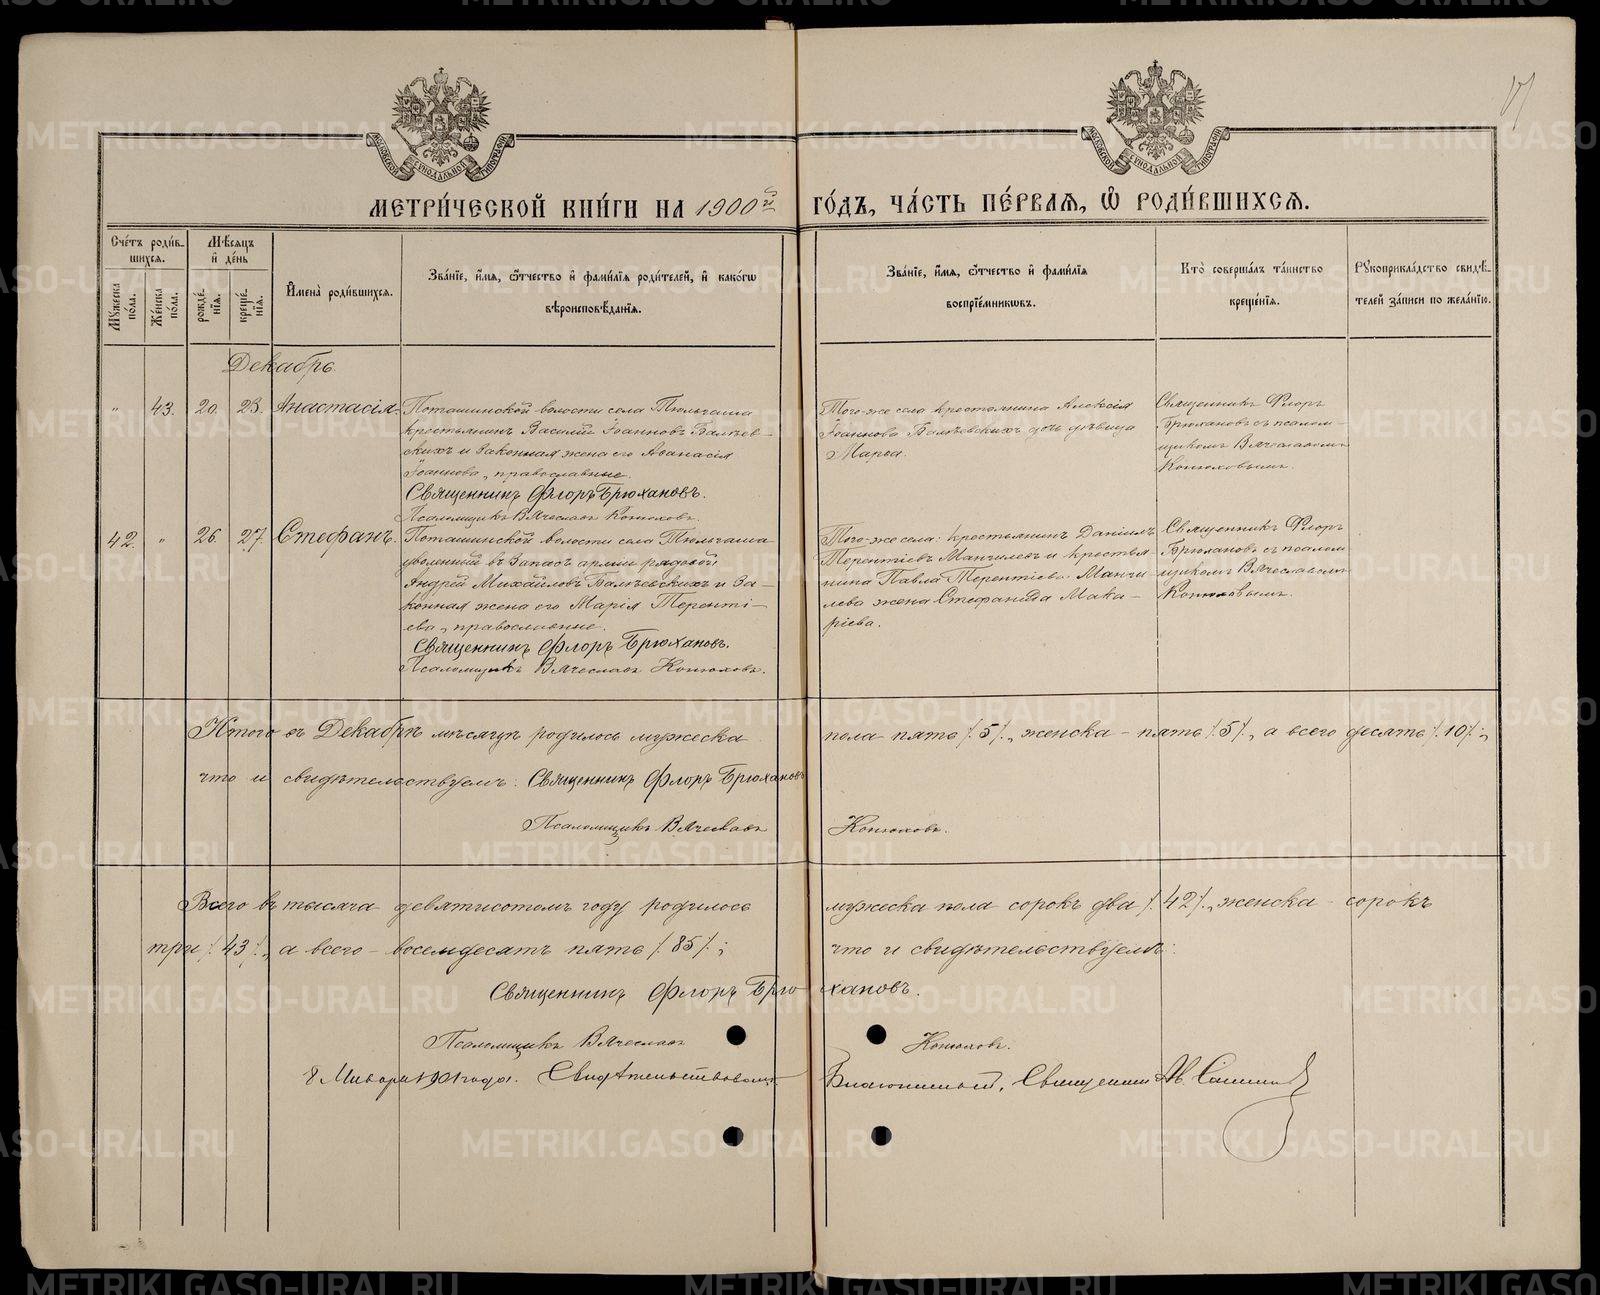 МОСКОВСКОЙ СѴНОДАЛЬНОЙ ТИПОГРАФІИ
МОСКОВСКОЙ СѴНОДАЛЬНОЙ ТИПОГРАФІИ
МЕТРИ́ЧЕСКОЙ КНИ́ГИ НА 1900й ГО́ДЪ, ЧА́СТЬ ПЕ́РВАЯ, Ѡ҆ РОДИ́ВШИХСЯ.
Сче́тъ роди́в-
шихся.
Мѣ́сяцъ
и҆ де́нь
Му́жеска по́ла.
Же́нска по́ла.
рожде́нїя.
креще́нїя.
И҆мена̀ роди́вшихся.
Зва́нїе, и҆́мя, ѻ҆́тчество и҆ фами́лїя роди́телей, и҆ како́гѡ
вѣроисповѣ́данїя.
Зва́нїе, и҆́мя, ѻ҆́тчество и҆ фами́лїя
воспрїе́мникѡвъ.
Кто̀ соверша́лъ та́инство
креще́нїя.
Рꙋкоприкла́дство свидѣ́-
телей за́писи по жела́нїю.
Декабрь.
" 43. 20. 23. Анастасія.
Поташинской волости села Тюльгаша
крестьянинъ Василій Іоанновъ Балѣев-
скихъ и законная жена его Аѳанасія
Іоаннова, православные.
Священникъ Флоръ Брюхановъ.
Псаломщикъ Вячеславъ Конюховъ.
Того-же села крестьянина Алексія
Іоаннова Балѣевскихъ дочь дѣвица
Марѳа.
Священникъ Флоръ
Брюхановъ съ псалом-
щикомъ Вячеславомъ
Конюховымъ.
42. " 26. 27. Стефанъ.
Поташинской волости села Тюльгаша
уволенный въ запасъ арміи рядовой
Андрій Михайловъ Балѣевскихъ и за-
конная жена его Марія Теренті-
ева, православные.
Священникъ Флоръ Брюхановъ.
Псаломщикъ Вячеславъ Конюховъ.
Того-же села: крестьянинъ Даніилъ
Терентіевъ Манчилевъ и крестья-
нина Павла Терентіева Манчи-
лева жена Стефанида Мака-
ріева.
Священникъ Флоръ
Брюхановъ съ псалом
щикомъ Вячеславомъ
Конюховымъ.
Итого въ Декабрѣ мѣсяцѣ родилось мужеска пола пять /5/, женска - пять /5/, а всего десять /10/;
что и свидѣтельствуемъ: Священникъ Флоръ Брюхановъ
Псаломщикъ Вячеславъ Конюховъ.
Всего въ тысяча девятисотомъ году родилось мужеска пола сорокъ два /42/, женска - сорокъ
три /43/, а всего - восемдесятъ пять /85/; что и свидѣтельствуемъ:
Священникъ Флоръ Брюхановъ.
Псаломщикъ Вячеславъ Конюховъ.
8 Января 1901 года. Свидѣтельствовалъ Благочинный, Священникъ